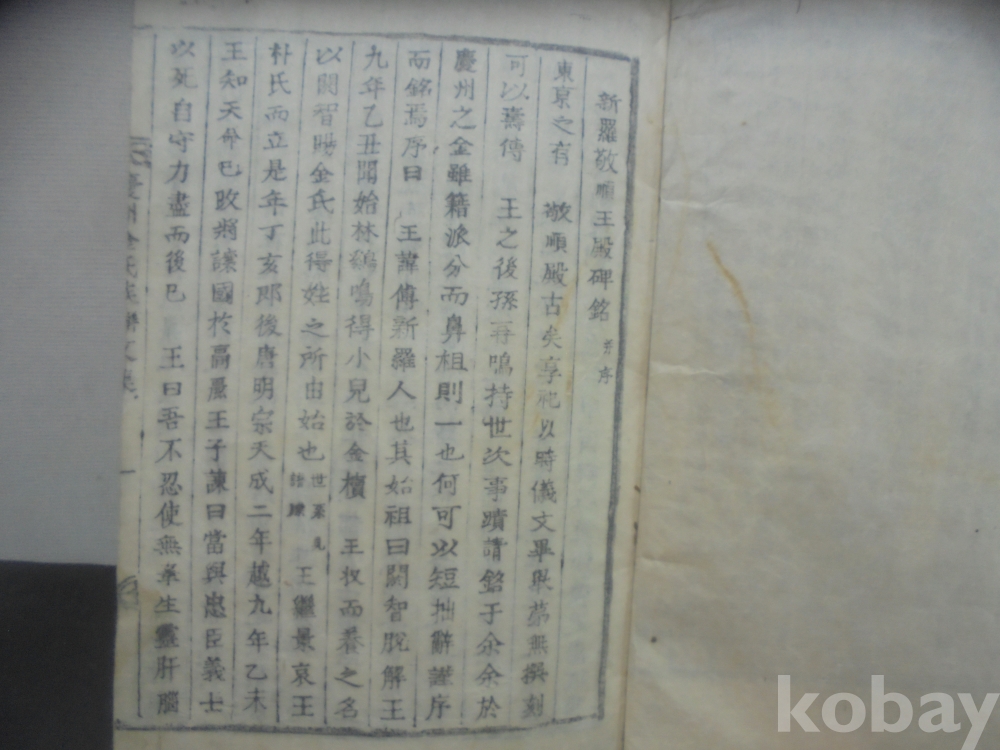 新羅敬順王殿碑銘 并序
東京之有 敬順殿古矣享祀以時儀文畢擧第無撰刻
可以壽傳 王之後孫再鳴持世次事蹟請銘于余余於
慶州之金雖籍派分而鼻祖則一也何可以短拙辭謹序
而銘焉序曰 王諱傅新羅人也其始祖曰閼智脫解王
九年乙丑聞始林鷄鳴得小兒於金櫝 王收而養之名
以閼智賜金氏此得姓之所由始也 世系見譜牒 王繼景哀王
朴氏而立是年丁亥卽後唐明宗天成二年越九年乙未
王知天命已改將讓國於高麗王子諫曰當與忠臣義士
以死自守力盡而後已 王曰吾不忍使無辜生靈肝腦
慶州金氏 一
kobay